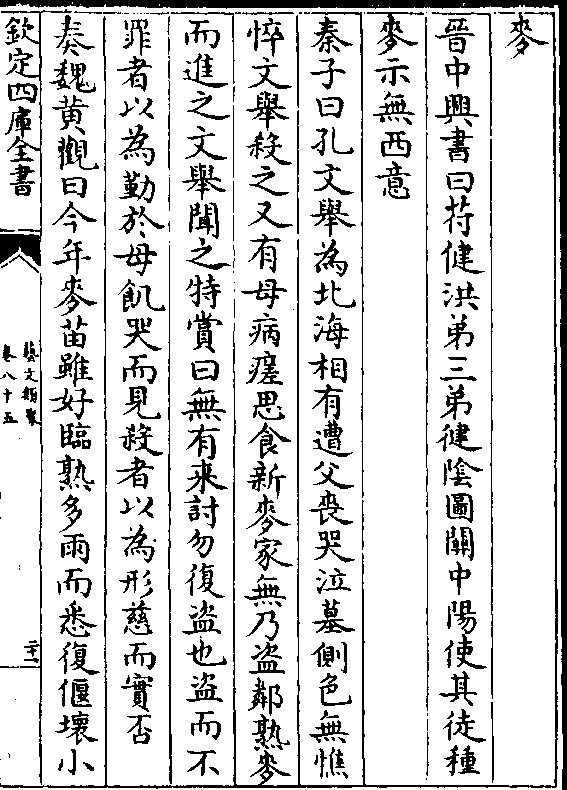 麥
晉中興書曰苻健洪第三弟健陰圖關中陽使其徒種
麥示無西意
秦子曰孔文舉為北海相有遭父喪哭泣墓側色無憔
悴文舉殺之又有母病瘥思食新麥家無乃盜鄰熟麥
而進之文舉聞之特賞曰無有来討勿復盜也盜而不
罪者以為勤於母飢哭而見殺者以為形慈而實否
奏魏黄觀曰今年麥苗雖好臨熟多雨而悉復偃壞小
欽定四庫全書
藝文類聚
卷八十五
二十一